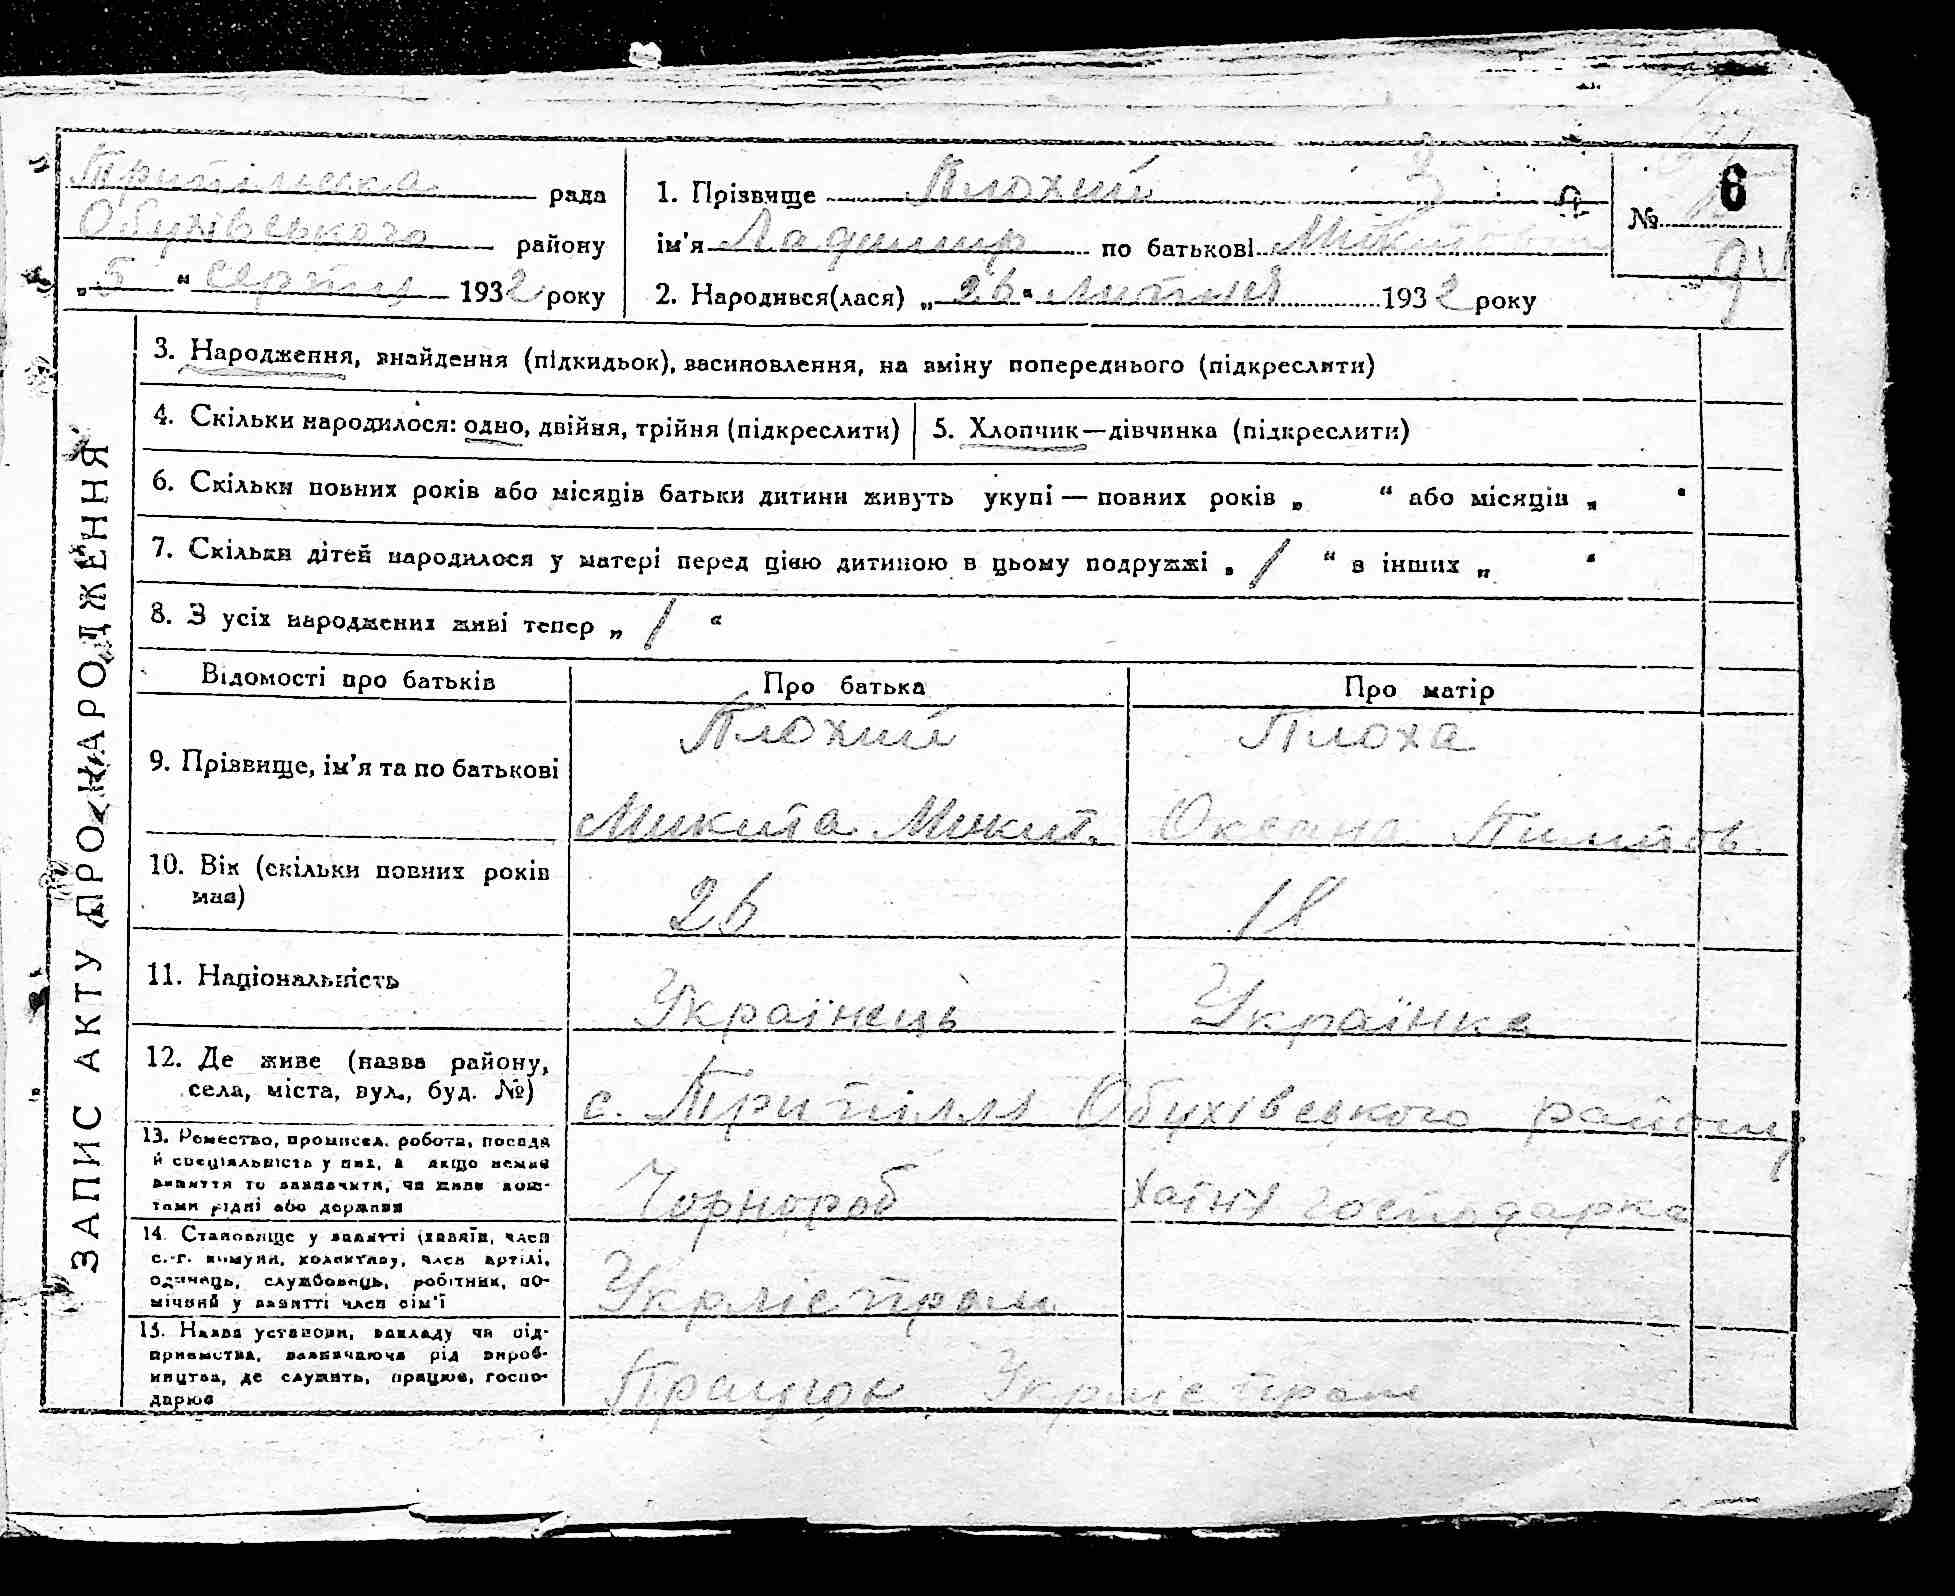 Трипільська рада
Обухівського району
„5“ серпня 1932 року
1. Прізвище Плохий
ім'я Ладимир по батькові Микитович
2. Народився(лася) „26“ липня 1932 року
№ 6
3. Народження, знайдення (підкидьок), засиновлення, на зміну попереднього (підкреслити)
4. Скільки народилося: одно, двійня, трійня (підкреслити)
5. Хлопчик—дівчинка (підкреслити)
6. Скільки повних років або місяців батьки дитини живуть укупі — повних років „ “ або місяців „ “
7. Скільки дітей народилося у матері перед цією дитиною в цьому подружжі „ / “ в інших „ “
8. З усіх народжених живі тепер „ / “
ЗАПИС АКТУ ПРО НАРОДЖЕННЯ
Відомості про батьків Про батька Про матір
9. Прізвище, ім'я та по батькові
Плохий Плоха
Микита Микит. Оксана
10. Вік (скільки повних років має)
26 18
11. Національність
Українець Українка
12. Де живе (назва району,
села, міста, вул., буд. №)
с. Трипілля Обухівського району
13. Ремество, промисел, робота, посада
й спеціальність у них, а якщо немає
заняття то зазначити, чи живе кош-
тами рідні або держави
Чорнороб хатня господарка
14. Становище у занятті (хазяїн, член
с.-г. комуни, колективу, член артілі,
одинець, службовець, робітник, по-
мічний у занятті член сім'ї
Укрліспром
15. Назва установи, закладу чи під-
приємства, зазначаючи рід вироб-
ництва, де служить, працює, госпо-
дарює
Працює Укрліспром